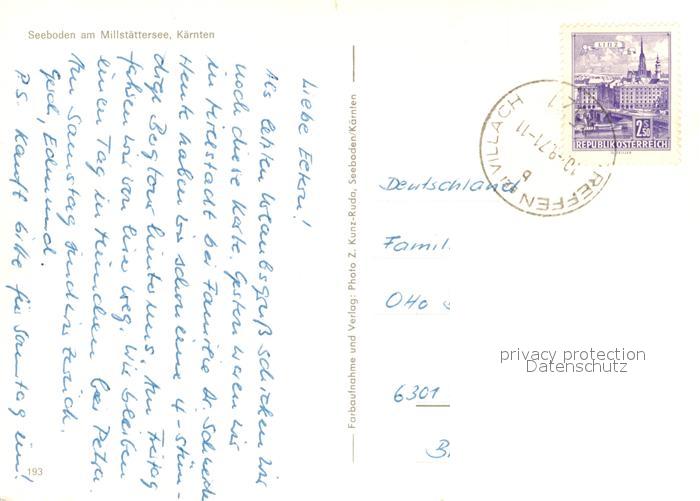 Seeboden am Millstättersee, Kärnten
Liebe Eltern!
Als letzten Urlaubsgruß schicken wir
noch diese Karte. Gestern waren wir
in Arnoldstadt bei Familie Dr. Schwerdt
Heute haben wir schon eine 4-stün-
dige Bergtour hinter uns. Am Freitag
fahren wir von hier weg. Wir bleiben
einen Tag in München bei Petra.
Am Samstag sind wir zurück.
Gerd, Edmund.
P.S. Kauft bitte für Samstag ein!
193
Farbaufnahme und Verlag: Photo Z. Kunz-Ruda, Seeboden/Kärnten
LINZ
2 S 50
REPUBLIK ÖSTERREICH
TREFFEN b. VILLACH
10.-9.71-11
b
Deutschland
Famil.
Otto
6301
privacy protection
Datenschutz